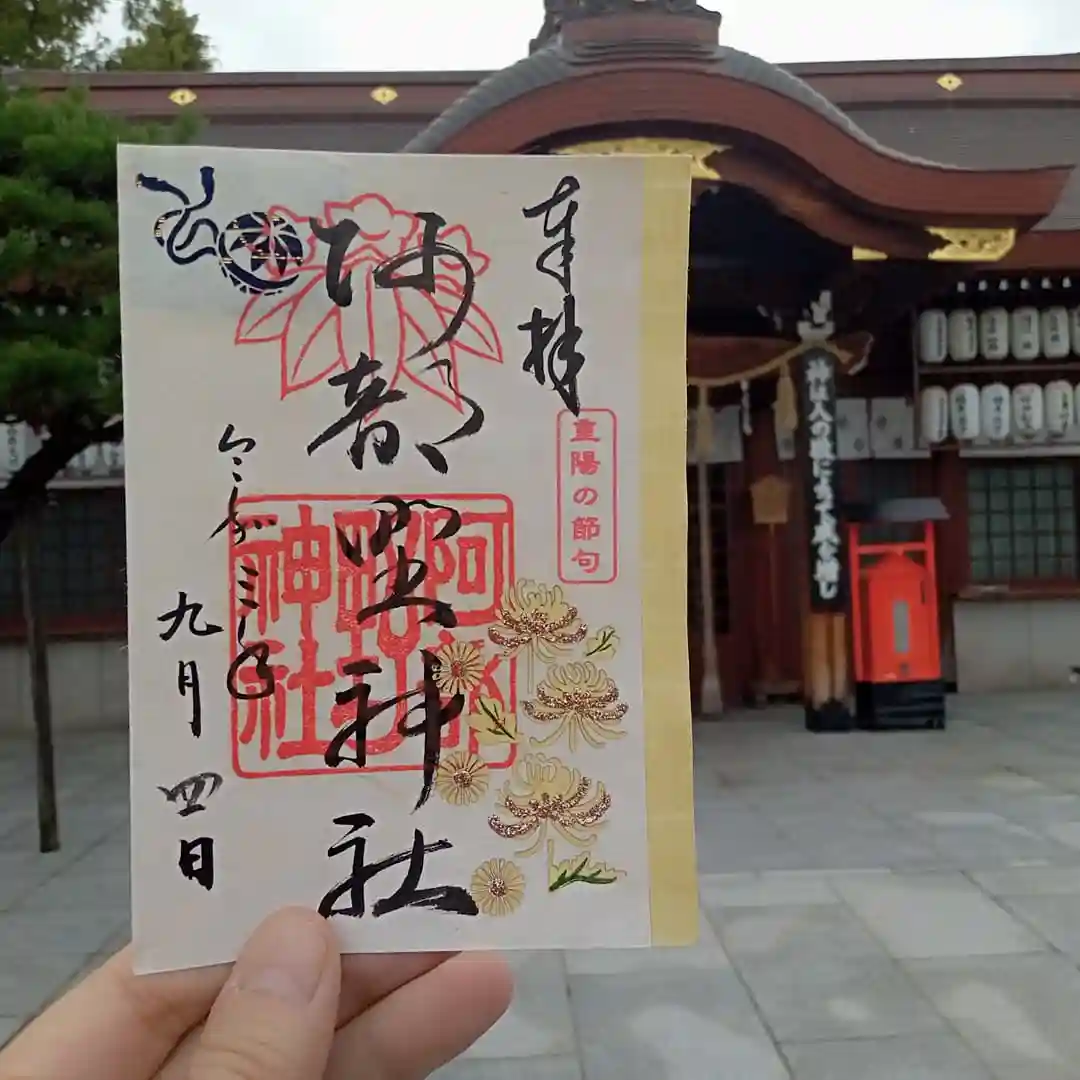 奉拝
重陽の節句
阿部野神社
阿部野神社
令和三年
九月四日
神は人の敬によりて威を増し